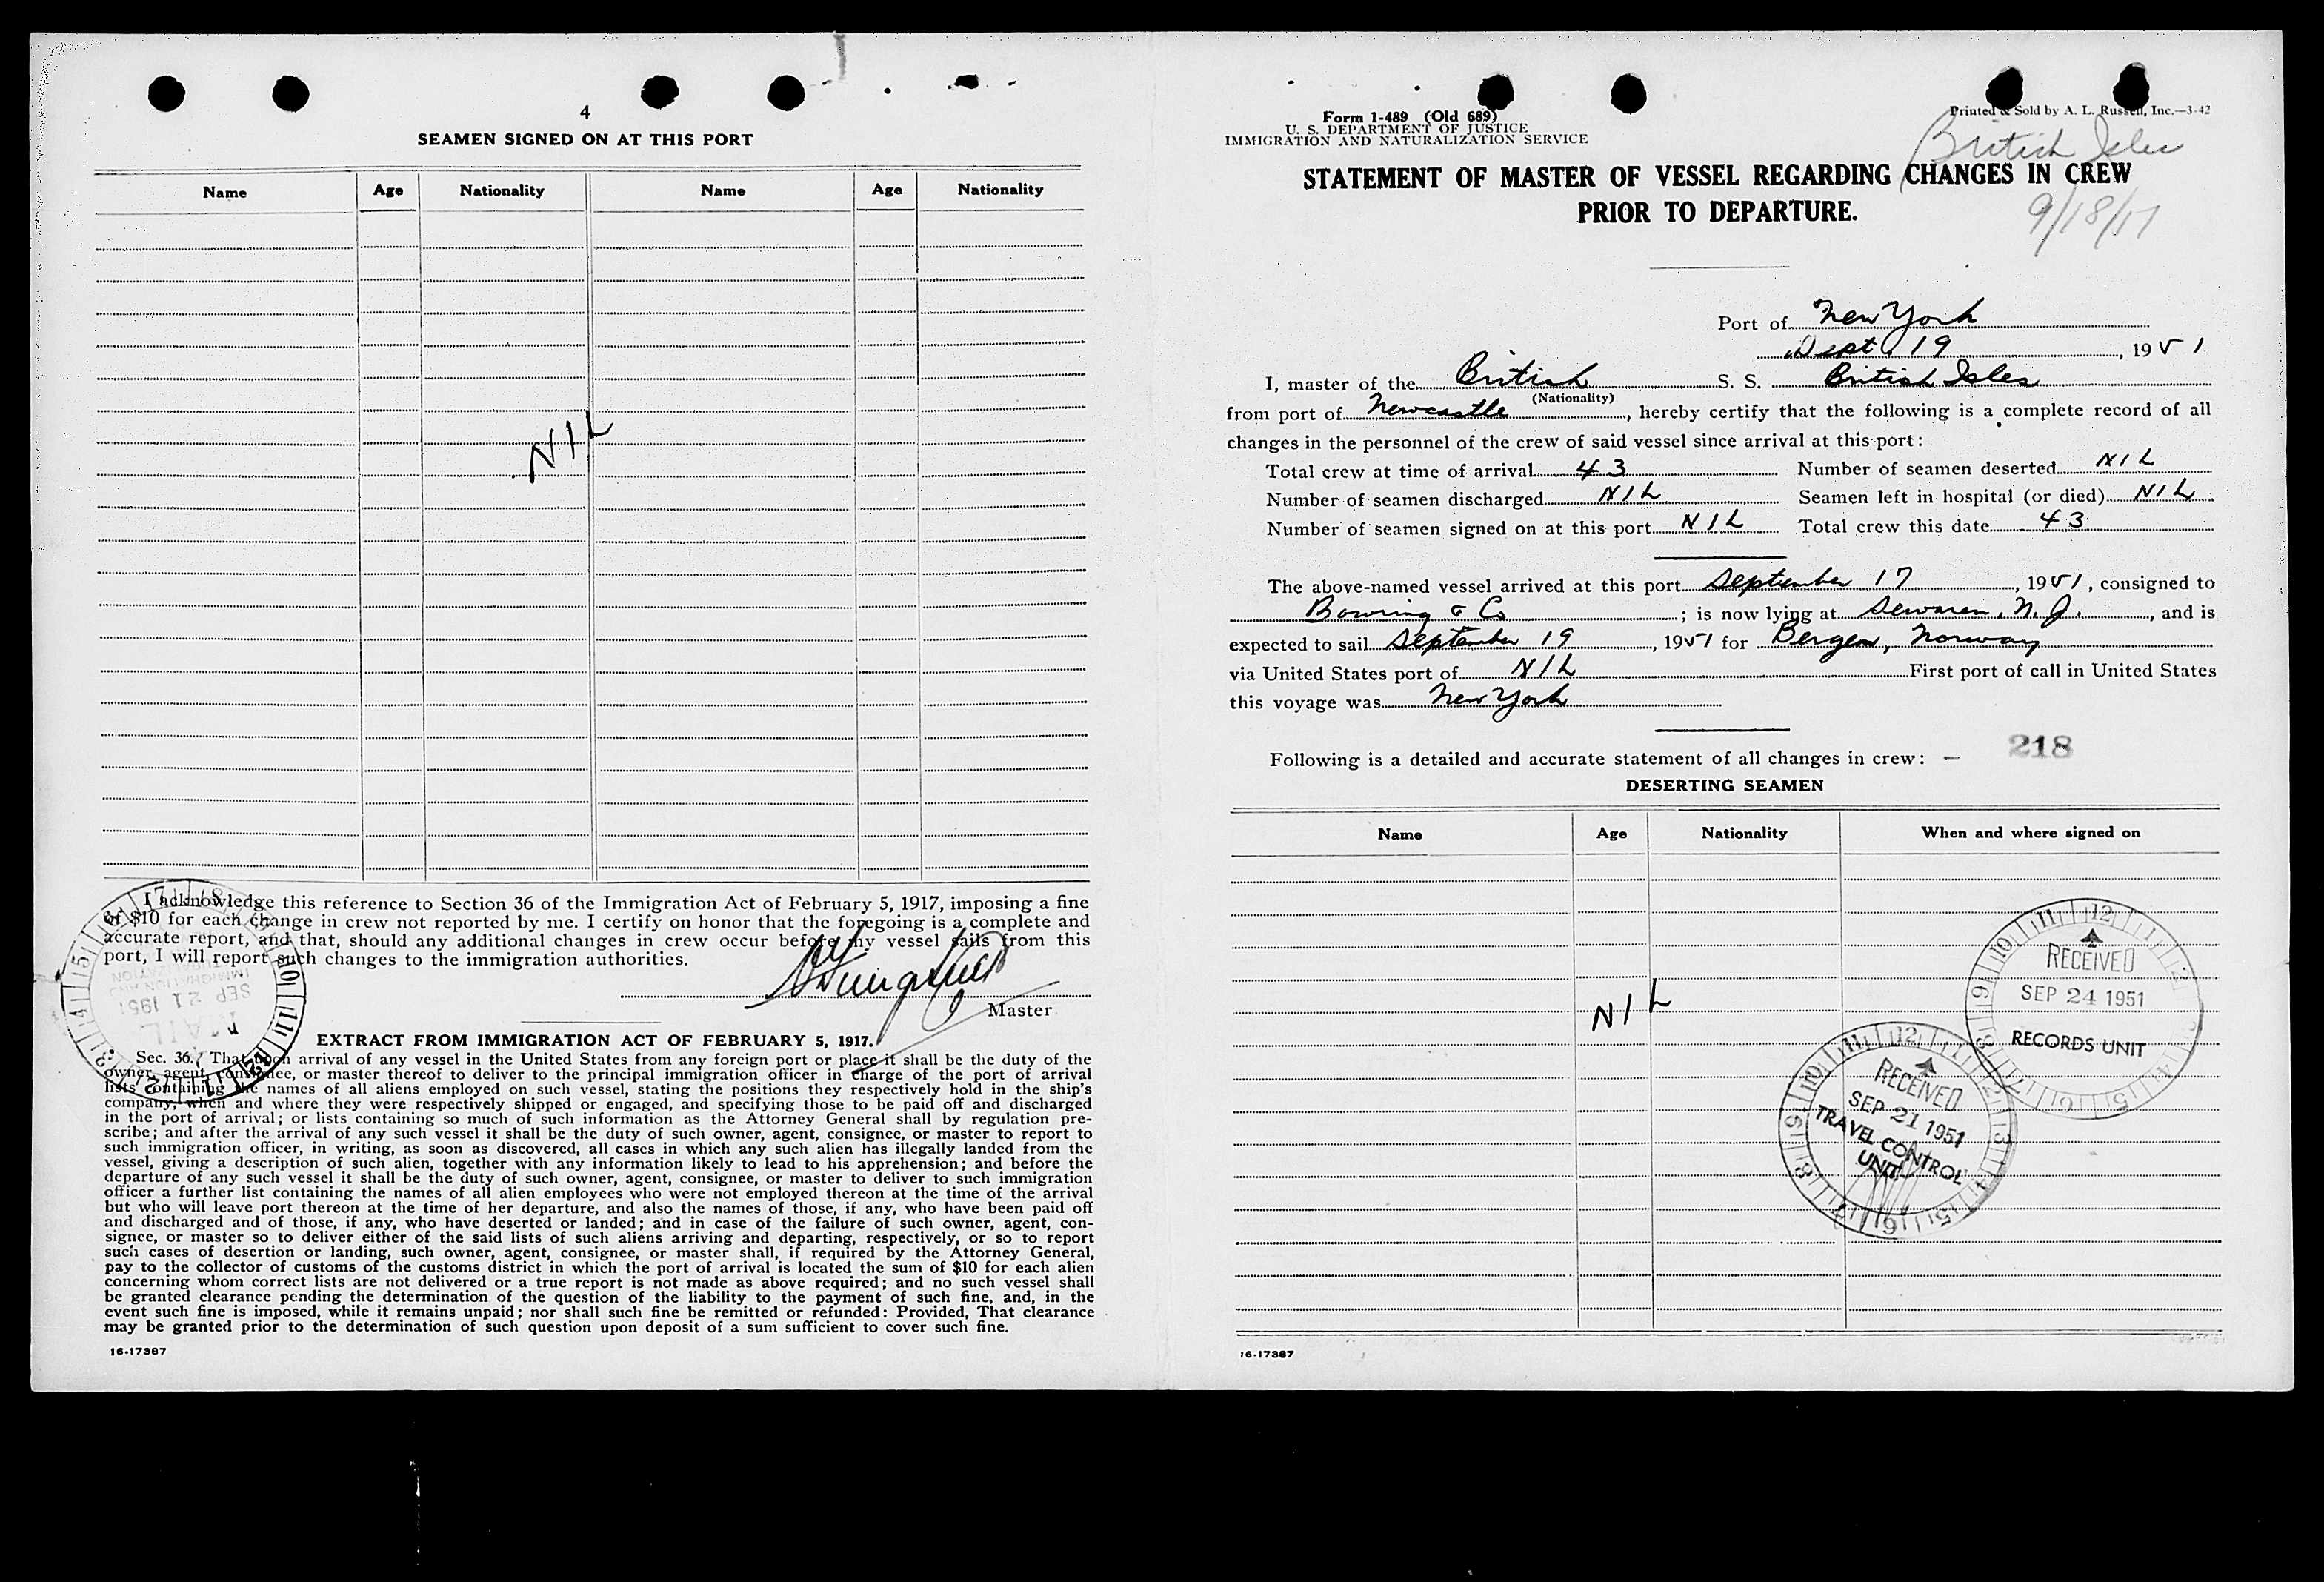 4
SEAMEN SIGNED ON AT THIS PORT
Name Age Nationality Name Age Nationality
NIL
I acknowledge this reference to Section 36 of the Immigration Act of February 5, 1917, imposing a fine
of $10 for each change in crew not reported by me. I certify on honor that the foregoing is a complete and
accurate report, and that, should any additional changes in crew occur before my vessel sails from this
port, I will report such changes to the immigration authorities.
Master
SEP 21 1951
MAIL
EXTRACT FROM IMMIGRATION ACT OF FEBRUARY 5, 1917.
Sec. 36. That upon arrival of any vessel in the United States from any foreign port or place it shall be the duty of the
owner, agent, consignee, or master thereof to deliver to the principal immigration officer in charge of the port of arrival
lists containing the names of all aliens employed on such vessel, stating the positions they respectively hold in the ship's
company, when and where they were respectively shipped or engaged, and specifying those to be paid off and discharged
in the port of arrival; or lists containing so much of such information as the Attorney General shall by regulation pre-
scribe; and after the arrival of any such vessel it shall be the duty of such owner, agent, consignee, or master to report to
such immigration officer, in writing, as soon as discovered, all cases in which any such alien has illegally landed from the
vessel, giving a description of such alien, together with any information likely to lead to his apprehension; and before the
departure of any such vessel it shall be the duty of such owner, agent, consignee, or master to deliver to such immigration
officer a further list containing the names of all alien employees who were not employed thereon at the time of the arrival
but who will leave port thereon at the time of her departure, and also the names of those, if any, who have been paid off
and discharged and of those, if any, who have deserted or landed; and in case of the failure of such owner, agent, con-
signee, or master so to deliver either of the said lists of such aliens arriving and departing, respectively, or so to report
such cases of desertion or landing, such owner, agent, consignee, or master shall, if required by the Attorney General,
pay to the collector of customs of the customs district in which the port of arrival is located the sum of $10 for each alien
concerning whom correct lists are not delivered or a true report is not made as above required; and no such vessel shall
be granted clearance pending the determination of the question of the liability to the payment of such fine, and, in the
event such fine is imposed, while it remains unpaid; nor shall such fine be remitted or refunded: Provided, That clearance
may be granted prior to the determination of such question upon deposit of a sum sufficient to cover such fine.
16-17387
Form 1-489 (Old 689)
U. S. DEPARTMENT OF JUSTICE
IMMIGRATION AND NATURALIZATION SERVICE
Printed & Sold by A. L. Russell, Inc.—3-42
British Isles
STATEMENT OF MASTER OF VESSEL REGARDING CHANGES IN CREW
PRIOR TO DEPARTURE.
9/18/17
Port of New York
Sept 19, 1951
I, master of the British S. S. British Isles
(Nationality)
from port of Newcastle, hereby certify that the following is a complete record of all
changes in the personnel of the crew of said vessel since arrival at this port:
Total crew at time of arrival 43 Number of seamen deserted NIL
Number of seamen discharged NIL Seamen left in hospital (or died) NIL
Number of seamen signed on at this port NIL Total crew this date 43
The above-named vessel arrived at this port September 17, 1951, consigned to
Bowring & Co; is now lying at Sewaren, N.J., and is
expected to sail September 19, 1951 for Bergen, Norway
via United States port of NIL First port of call in United States
this voyage was New York
218
Following is a detailed and accurate statement of all changes in crew: —
DESERTING SEAMEN
Name Age Nationality When and where signed on
NIL
RECEIVED
SEP 24 1951
RECORDS UNIT
RECEIVED
SEP 21 1951
TRAVEL CONTROL
UNIT
16-17387